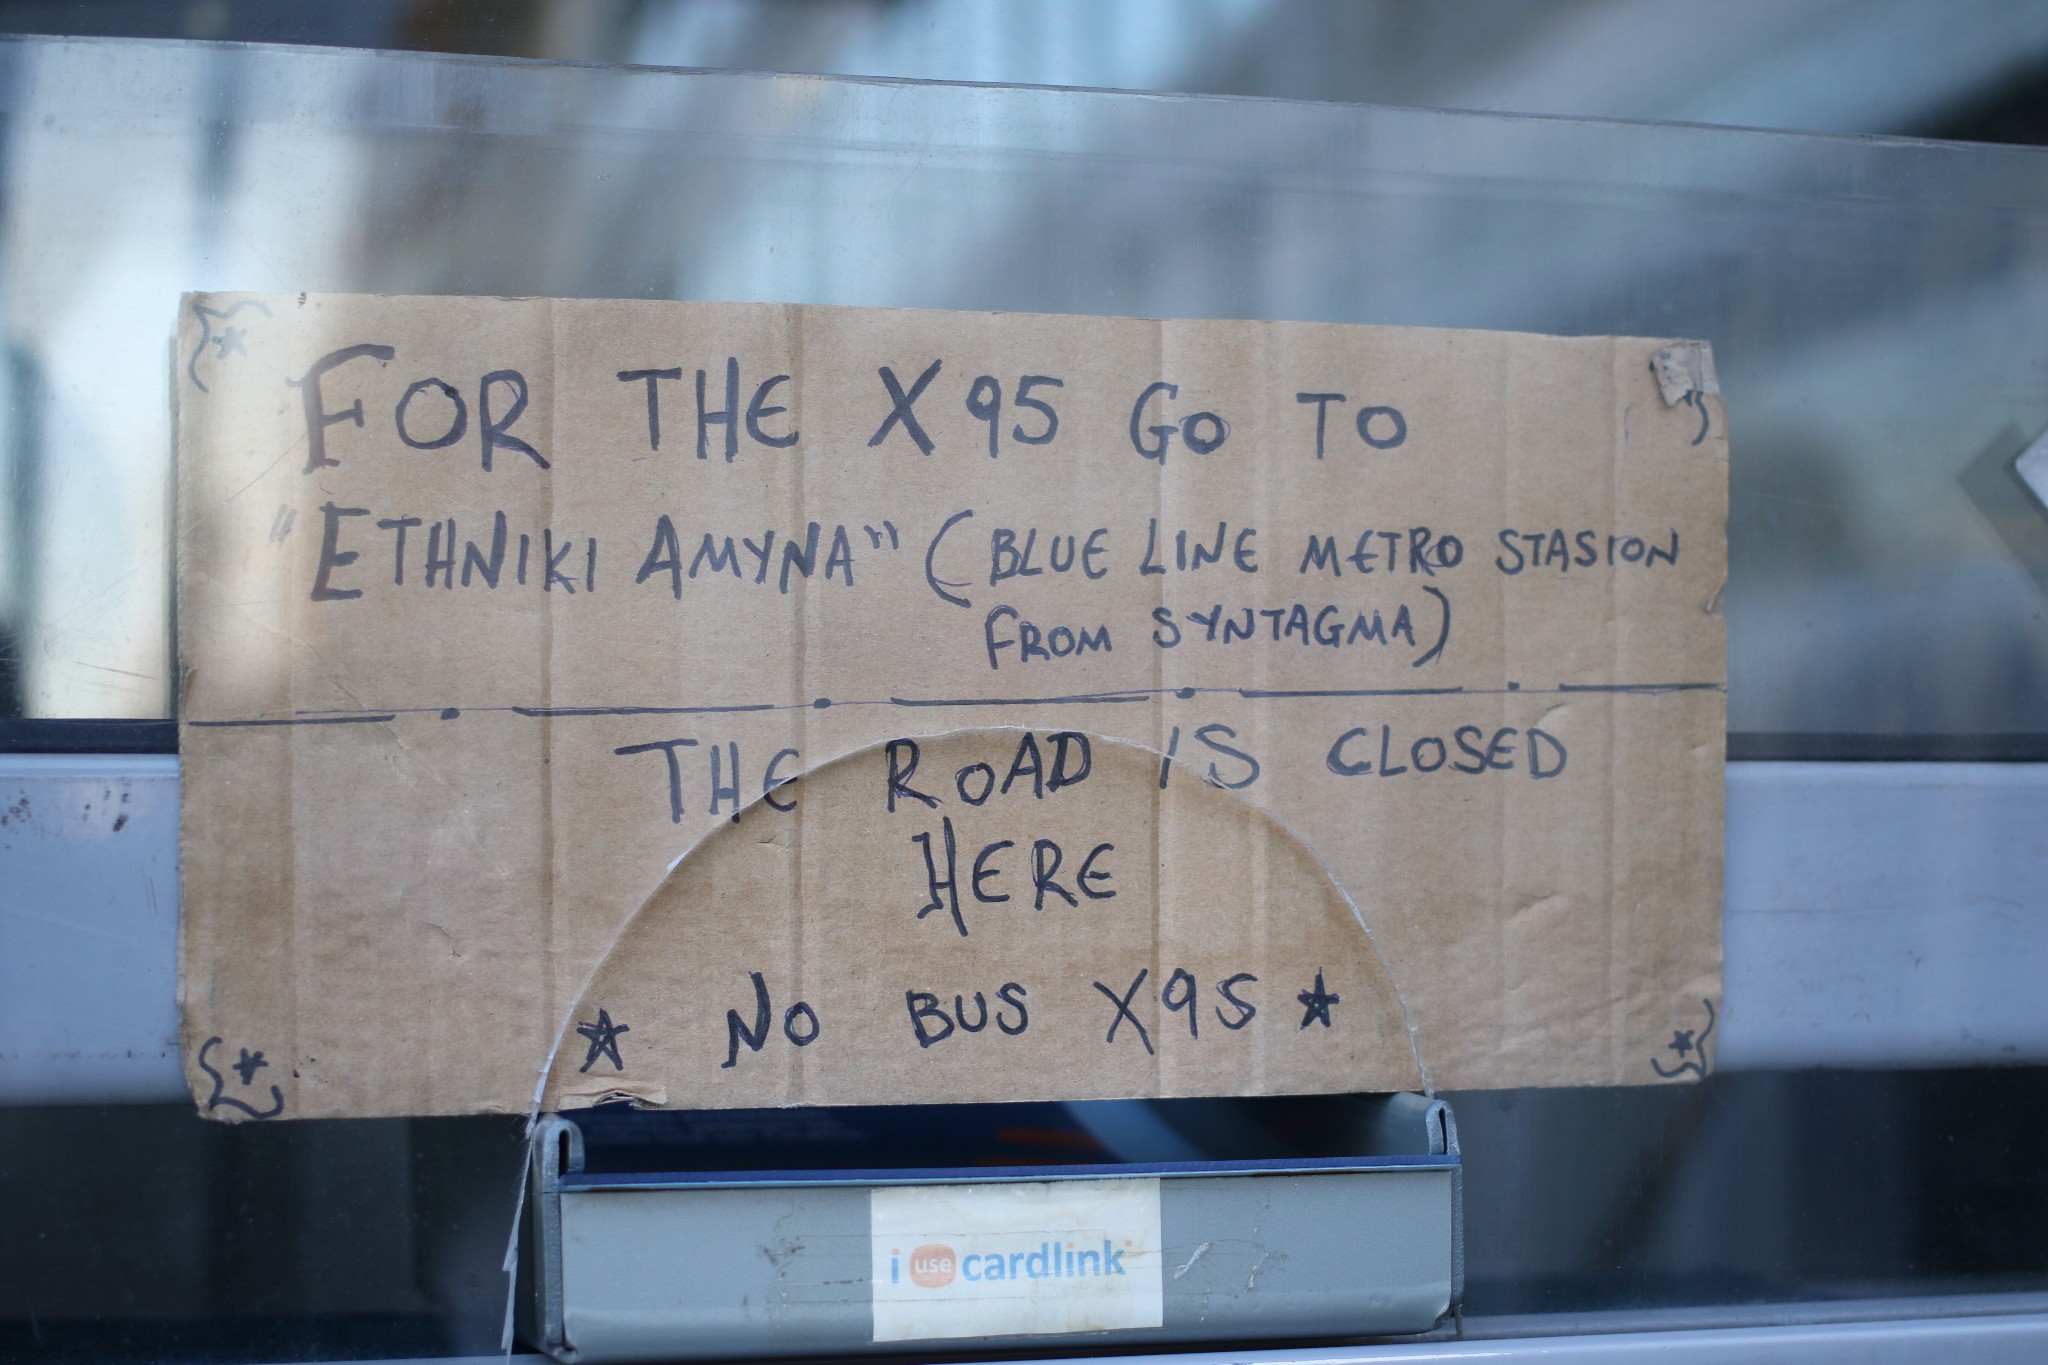 FOR THE X95 GO TO
"ETHNIKI AMYNA" (BLUE LINE METRO STASION
FROM SYNTAGMA)
THE ROAD IS CLOSED
HERE
NO BUS X95
i use cardlink